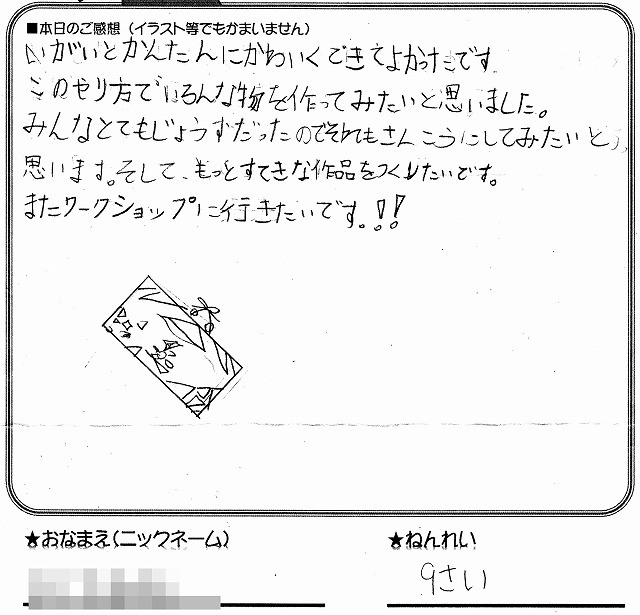 ■本日のご感想（イラスト等でもかまいません）
いがいとかんたんにかわいくできてよかったです
このやり方でいろんな物を作ってみたいと思いました。
みんなとてもじょうずだったのでそれもさんこうにしてみたいと
思います。そして、もっとすてきな作品をつくりたいです。
またワークショップに行きたいです。!!
★おなまえ(ニックネーム)
★ねんれい
9さい